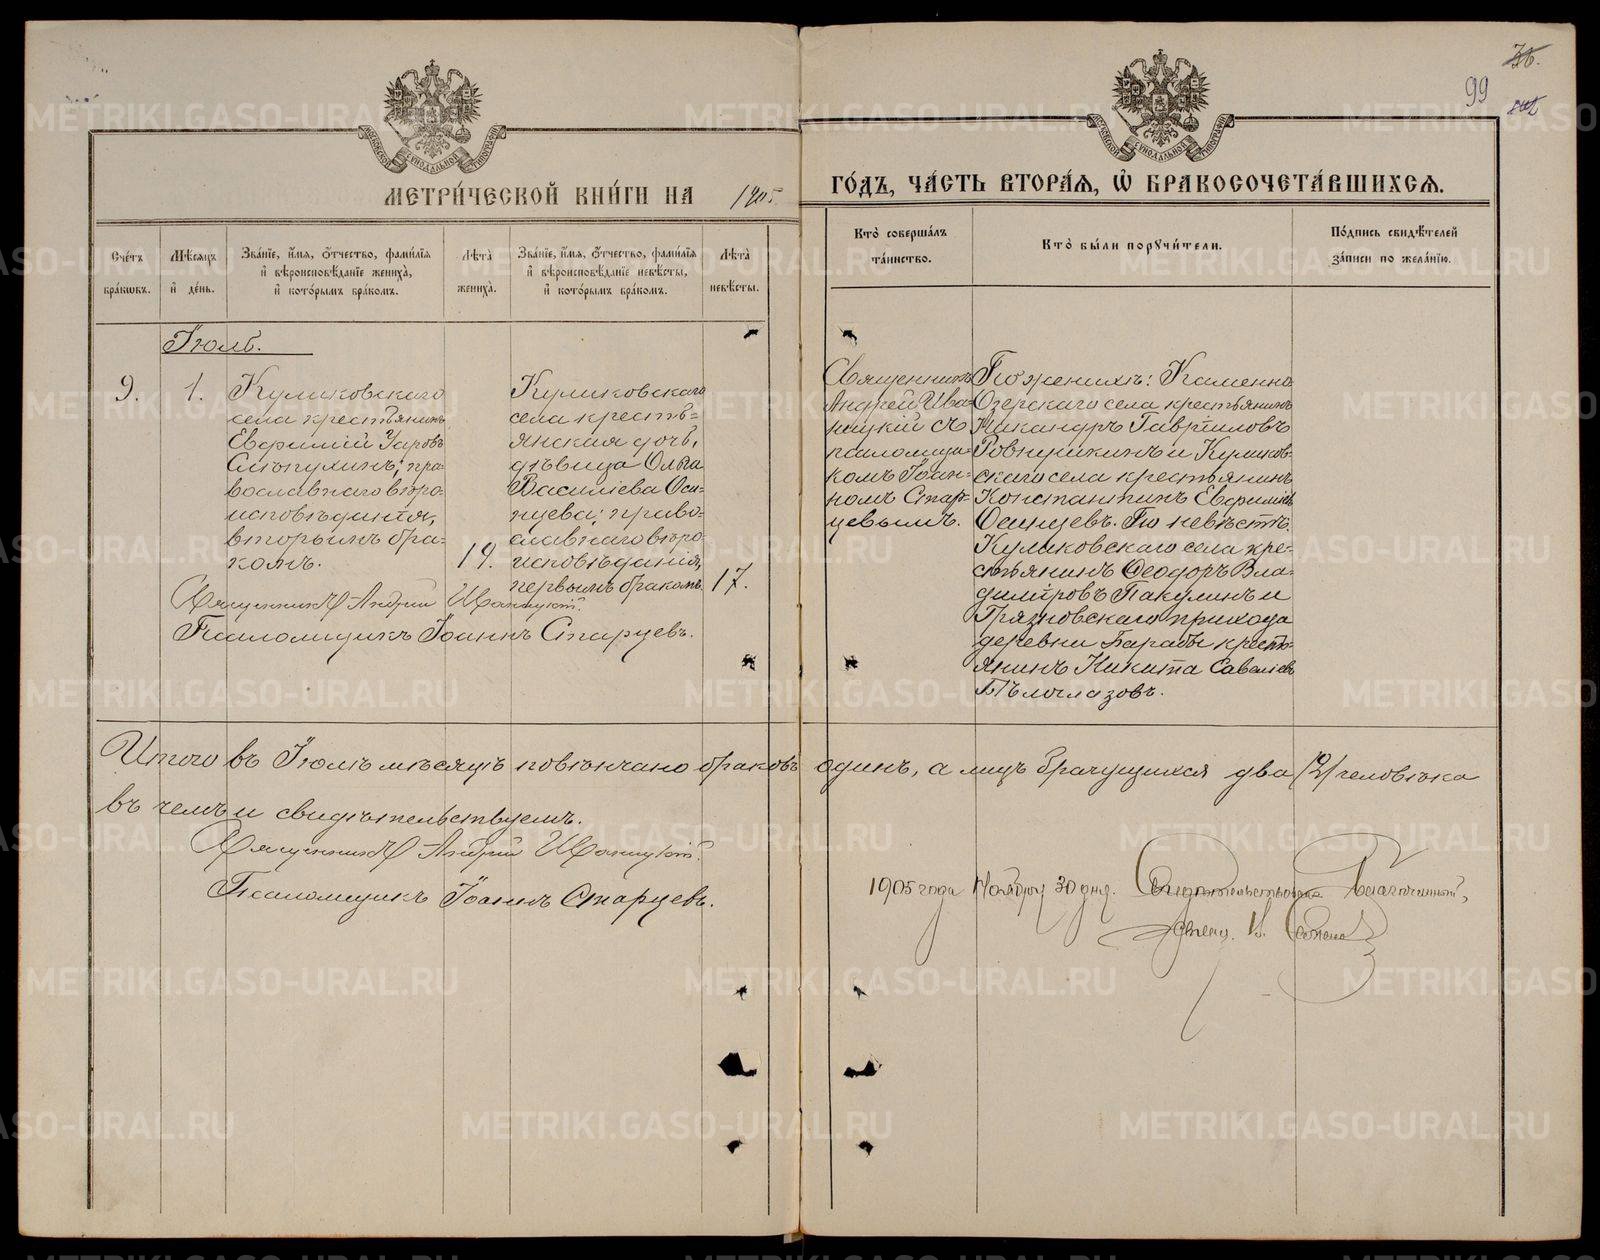 99
МЕТРИ́ЧЕСКОЙ КНИ́ГИ НА 1905
ГО́ДЪ, ЧА́СТЬ ВТОРА́Я, Ѡ҆ БРАКОСОЧЕТА́ВШИХСЯ.
Сче́тъ
бра́кѡвъ.
Мѣ́сяцъ
и҆ де́нь.
Зва́нїе, и҆́мя, ѻ҆́тчество, фами́лїя
и҆ вѣроисповѣ́данїе жениха̀,
и҆ кото́рымъ бра́комъ.
Лѣ́та
жениха̀.
Зва́нїе, и҆́мя, ѻ҆́тчество, фами́лїя
и҆ вѣроисповѣ́данїе невѣ́сты,
и҆ кото́рымъ бра́комъ.
Лѣ́та
невѣ́сты.
Кто̀ соверша́лъ
та́инство.
Кто̀ бы́ли порꙋчи́тели.
По́дпись свидѣ́телей
за́писи по жела́нїю.
Іюль.
9.
1.
Куликовскаго
села крестьянинъ
Евфимій Уаровъ
православнаго вѣро-
исповѣданія,
вторымъ бра-
комъ.
19.
Куликовскаго
села кресть-
янская дочь,
дѣвица Ольга
Василіева Оси-
нцева; право-
славнаго вѣро-
исповѣданія,
первымъ бракомъ.
17.
Священникъ
Андрей Ива-
ницкій съ
псаломщи-
комъ Іоан-
номъ Стар-
цевымъ.
По женихѣ: Каменно-
Озерскаго села крестьянинъ
Никандръ Гавриловъ
Ровнушкинъ и Куликов-
скаго села крестьянинъ
Константинъ Евфиміевъ
Осинцевъ. По невѣстѣ
Куликовскаго села кре-
стьянинъ Ѳеодоръ Вла-
диміровъ Пакулинъ и
Грязновскаго прихода
деревни Барабы кресть-
янинъ Никита Савеліевъ
Бѣлоглазовъ.
Священникъ Андрей Иваницкій.
Псаломщикъ Іоаннъ Старцевъ.
Итого въ Іюлѣ мѣсяцѣ повѣнчано браковъ одинъ, а лицъ брачущихся два /2/ человѣка
въ чемъ и свидѣтельствуемъ.
Священникъ Андрей Иваницкій.
Псаломщикъ Іоаннъ Старцевъ.
1905 года Ноября 30 дня. Свидѣтельствовалъ Благочинный,
METRIKI.GASO-URAL.RU